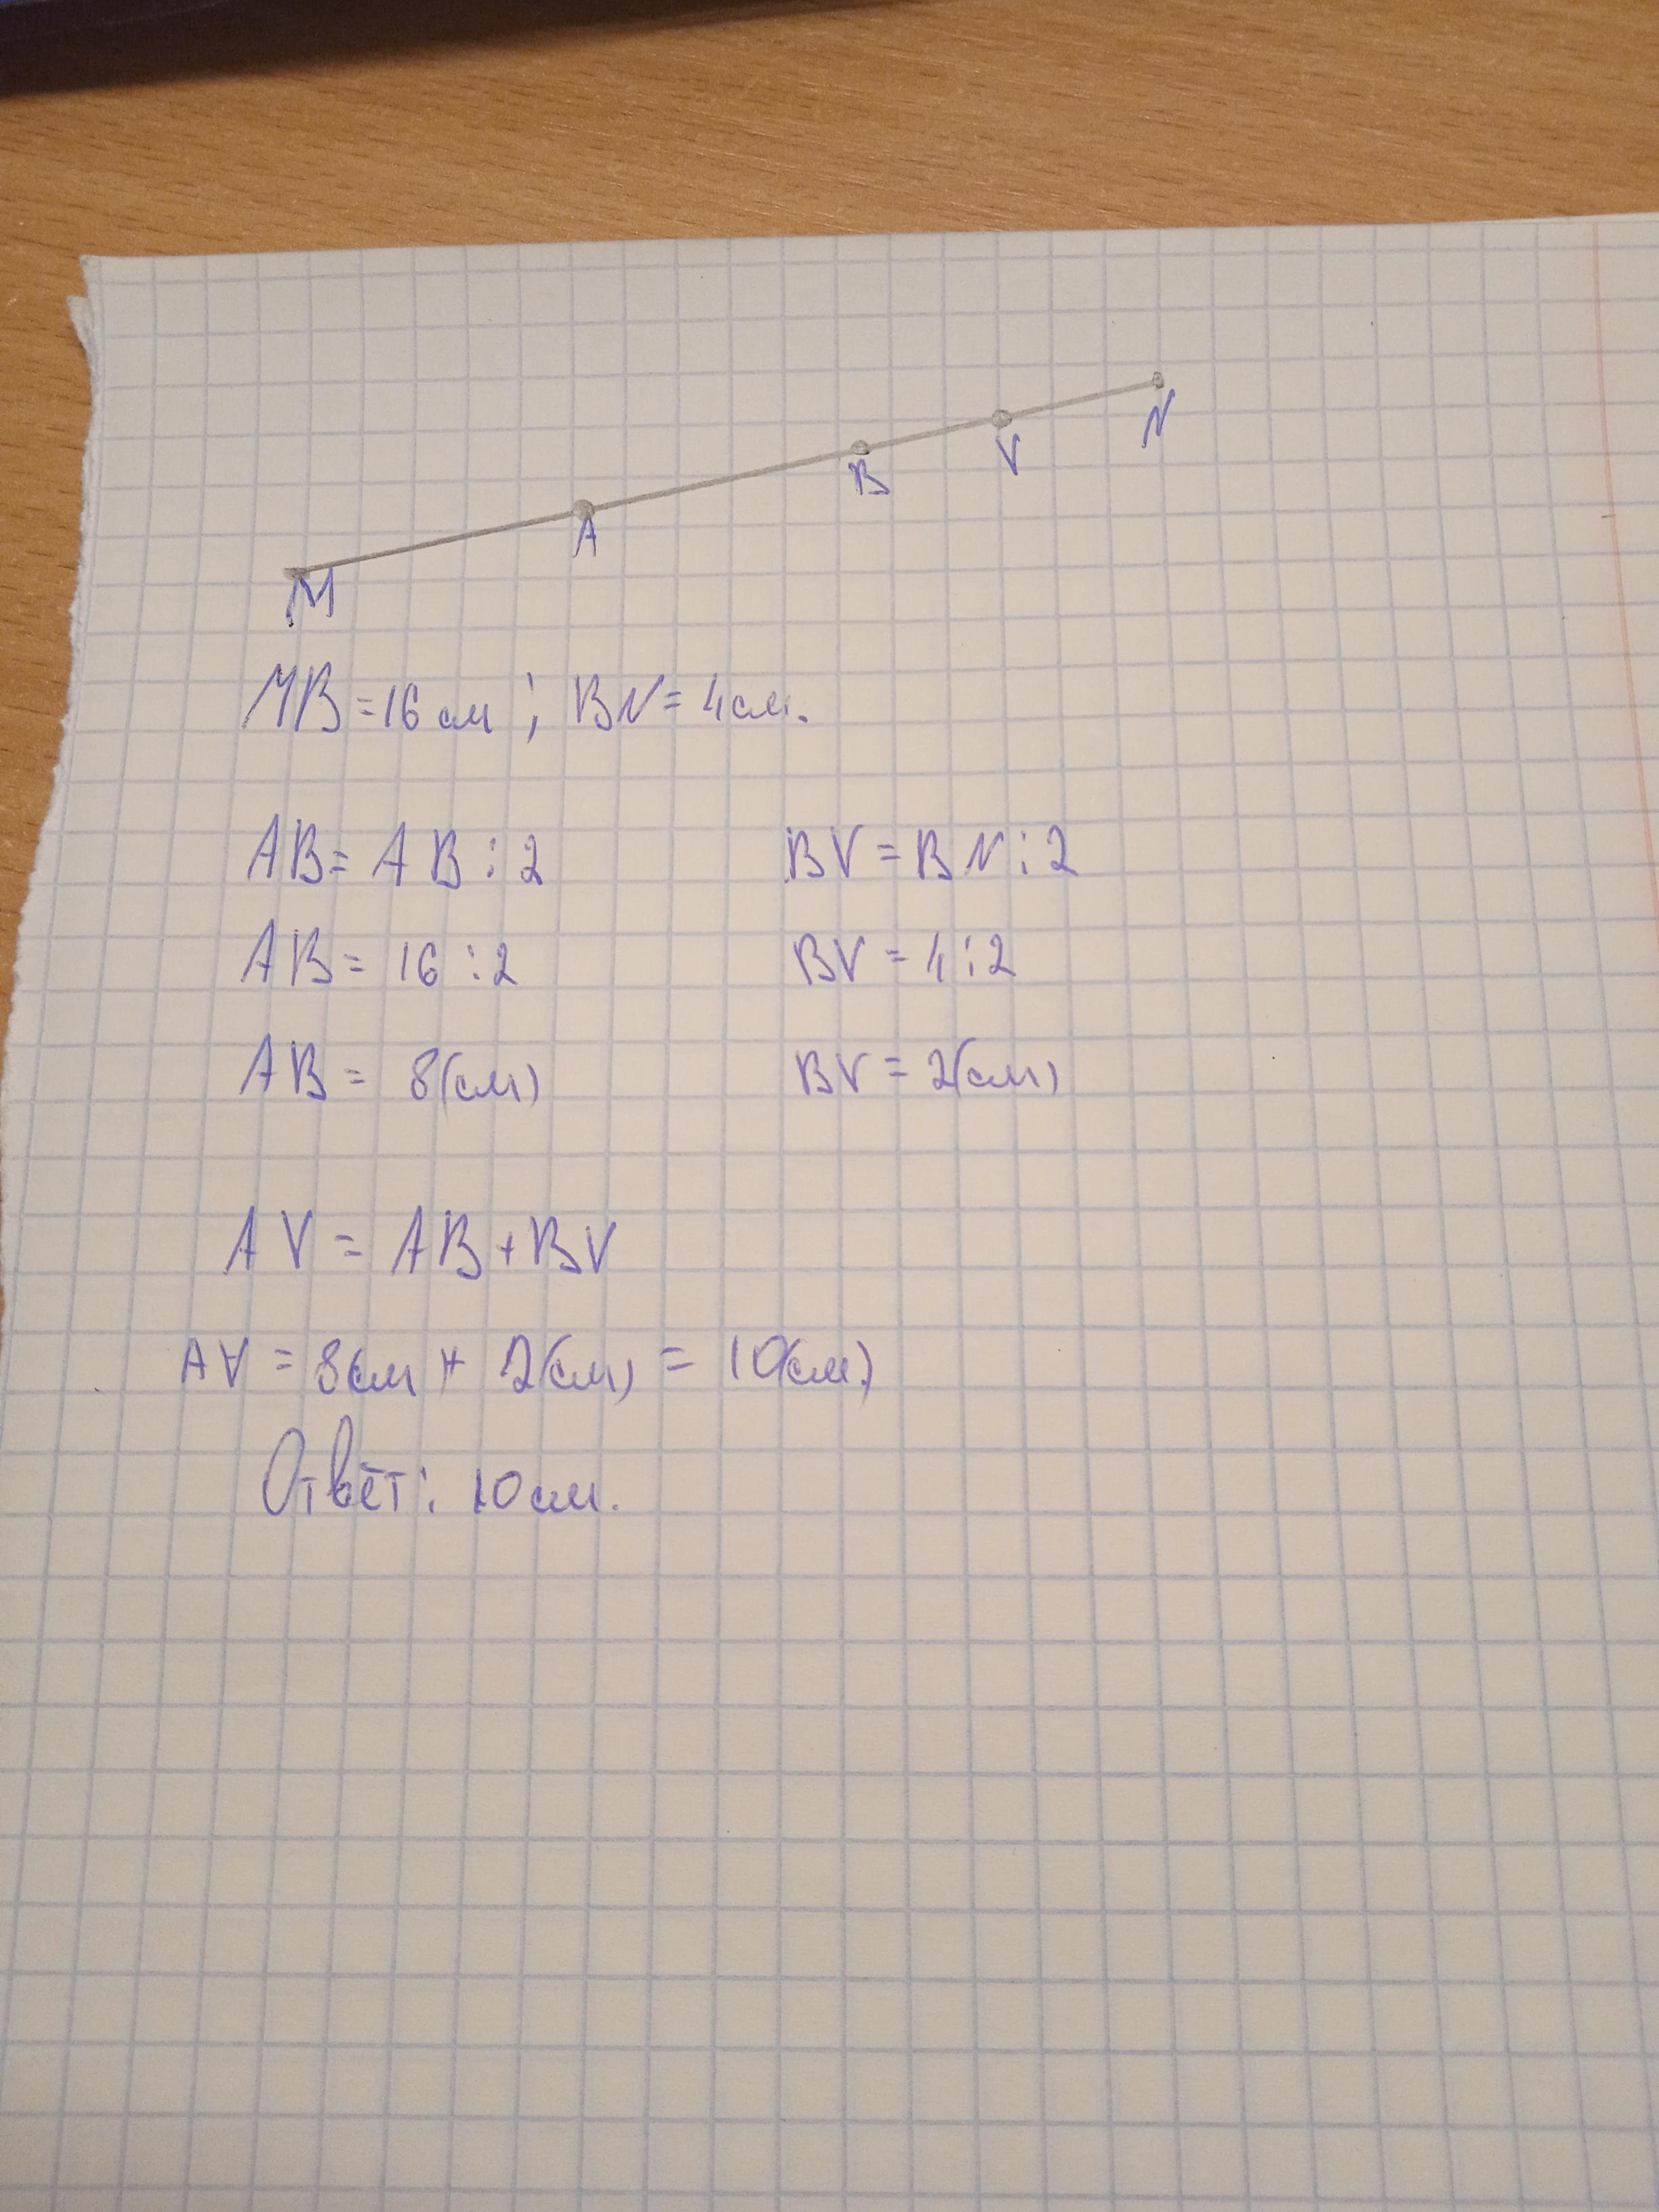 M A B V N
MB = 16 см ; BN = 4 см.
AB = AB : 2 BV = BN : 2
AB = 16 : 2 BV = 4 : 2
AB = 8(см) BV = 2(см)
AV = AB + BV
AV = 8см + 2(см) = 10(см.)
Ответ: 10 см.